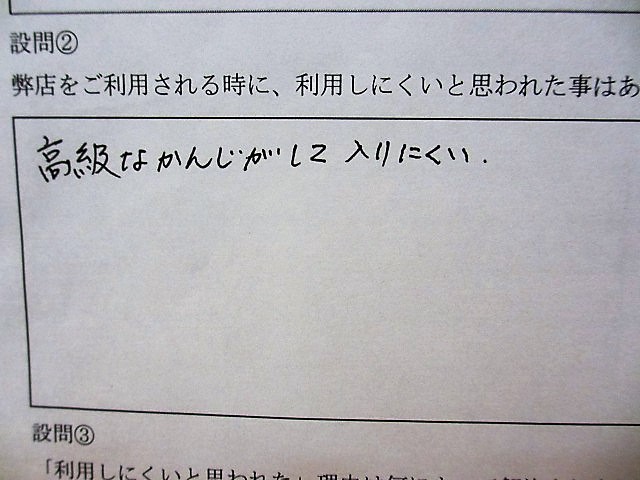 設問②
弊店をご利用される時に、利用しにくいと思われた事はあ
高級なかんじがして入りにくい.
設問③
「利用しにくいと思われた」理由は何に